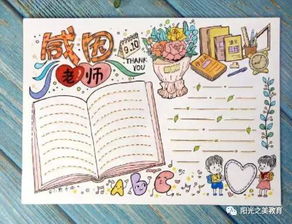 感恩
老师
9.10
THANK
YOU
ABC
阳光之美教育